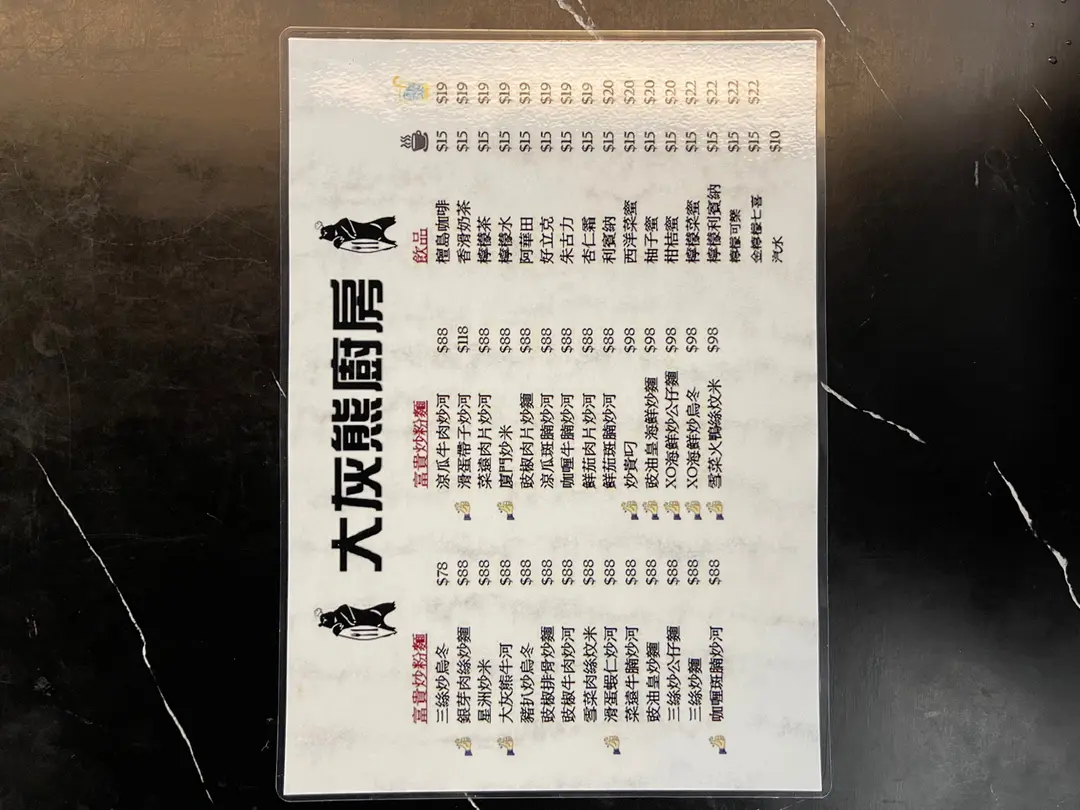 大灰熊廚房
富貴炒粉麵
三絲炒烏冬 $78
銀芽肉絲炒麵 $88
星洲炒米 $88
大灰熊牛河 $88
豬扒炒烏冬 $88
豉椒排骨炒麵 $88
豉椒牛肉炒河 $88
雪菜肉絲炆米 $88
滑蛋蝦仁炒河 $88
菜遠牛腩炒河 $88
豉油皇炒麵 $88
三絲炒公仔麵 $88
三絲炒麵 $88
咖喱斑腩炒河 $88
富貴炒粉麵
涼瓜牛肉炒河 $88
滑蛋帶子炒河 $118
菜遠肉片炒河 $88
廈門炒米 $88
豉椒肉片炒麵 $88
涼瓜斑腩炒河 $88
咖喱牛腩炒河 $88
鮮茄肉片炒河 $88
鮮茄斑腩炒河 $88
炒貴叼 $98
豉油皇海鮮炒麵 $98
XO海鮮炒公仔麵 $98
XO海鮮炒烏冬 $98
雪菜火鴨絲炆米 $98
飲品
檀島咖啡 $15 $19
香滑奶茶 $15 $19
檸檬茶 $15 $19
檸檬水 $15 $19
阿華田 $15 $19
好立克 $15 $19
朱古力 $15 $19
杏仁霜 $15 $19
利賓納 $15 $20
西洋菜蜜 $15 $20
柚子蜜 $15 $20
柑桔蜜 $15 $20
檸檬菜蜜 $15 $22
檸檬利賓納 $15 $22
檸檬可樂 $15 $22
金檸檬七喜 $15 $22
汽水 $10